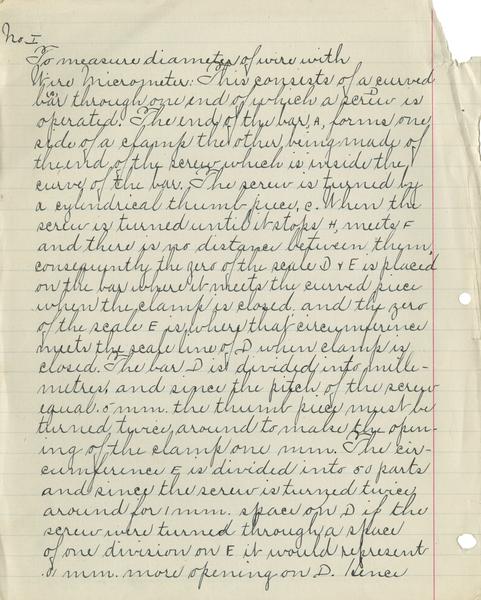 No. I
To measure diameter of wire with
Wire Micrometer: This consists of a curved
bar through one end of which a screw is
operated. The end of the bar, A, forms one
side of a clamp the other being made of
the end of the screw which is inside the
curve of the bar. The screw is turned by
a cylindrical thumb piece, C. When the
screw is turned until it stops, H, meets F
and there is no distance between them,
consequently the zero of the scale D & E is placed
on the bar where it meets the curved piece
when the clamp is closed and the zero
of the scale E is where that circumference
meets the scale line of D when clamp is
closed. The bar D is divided into mille-
metres, and since the pitch of the screw
equal .5 mm. the thumb piece must be
turned twice around to make the open-
ing of the clamp one mm. The cir-
cumference E is divided into 50 parts
and since the screw is turned twice
around for 1 mm. space on D if the
screw were turned through a space
of one division on E it would represent
mm. more opening on D. Since